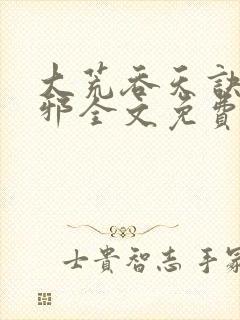 大荒吞天訣
邪全文免費
士貴智志手冢